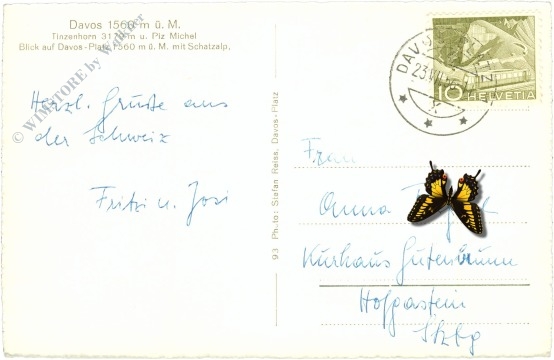 Davos 1560 m ü. M.
Tinzenhorn 3179 m u. Piz Michel
Blick auf Davos-Platz 1560 m ü. M. mit Schatzalp.
© WIMSTORE by Wimmer
Herzl. Grüße aus
der Schweiz
Fritz u. Josi
93 Photo: Stefan Reiss, Davos-Platz
DAVOS
23.VII
10 HELVETIA
Frau
Anna
Kurhaus Gutenbrunn
Hofgastein
Slzbg